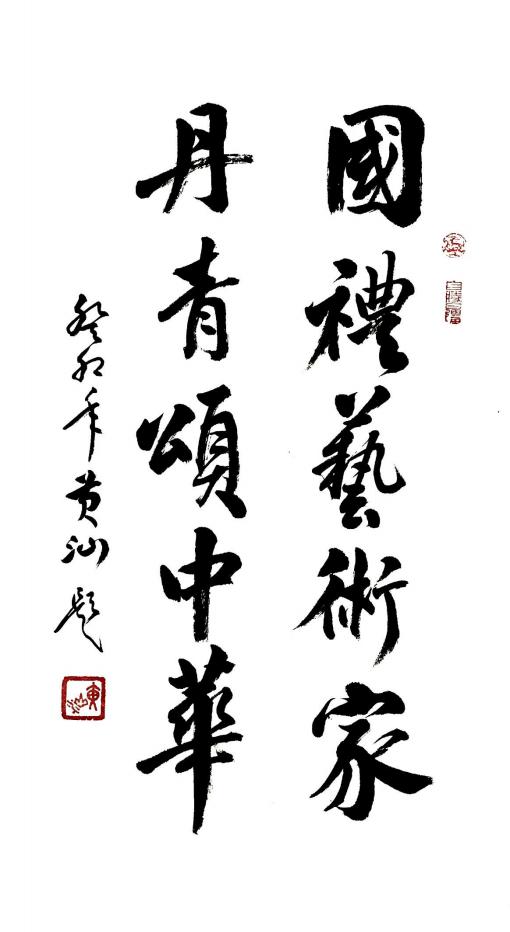 國禮藝術家
丹青頌中華
癸卯年黄汕題